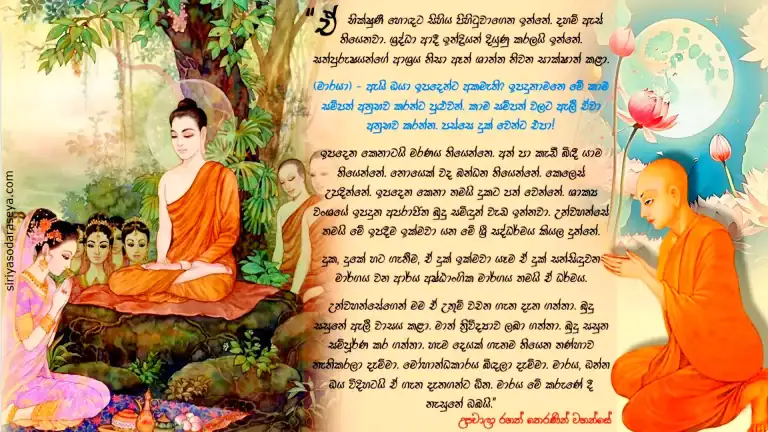 "ඒ භික්ෂුණී හොඳට සිහිය පිහිටුවාගෙන ඉන්නේ. දහම් ඇස්
තියෙනවා. ශ්‍රද්ධා ආදී ඉන්ද්‍රියන් දියුණු කරලයි ඉන්නේ.
සත්පුරුෂයන්ගේ ආශ්‍රය නිසා ඇත් ශාන්ත නිවන සාක්ෂාත් කළා.
(මාරයා) - ඇයි ඔයා ඉපදෙන්ට අකමැති? ඉපදුනාමනෙ මේ කාම
සම්පත් අනුභව කරන්ට පුළුවන්. කාම සම්පත් වලට ඇලී ඒවා
අනුභව කරන්න. පස්සෙ දුක් වෙන්ට එපා!
ඉපදෙන කෙනාටයි මරණය තියෙන්නෙ. අත් පා කැඩී බිඳී යාම
තියෙන්නේ. නොයෙක් වද බන්ධන තියෙන්නේ. කෙලෙස්
උපදින්නේ. ඉපදෙන කෙනා තමයි දුකට පත් වෙන්නේ. ශාක්‍ය
වංශයේ ඉපදුන අපරාජිත බුදු සමිඳුන් වැඩ ඉන්නවා. උන්වහන්සේ
තමයි මේ ඉපදීම ඉක්මවා යන මේ ශ්‍රී සද්ධර්මය කියල දුන්නේ.
දුක, දුකේ හට ගැනීම, ඒ දුක් ඉක්මවා යෑම ඒ දුක් සන්සිඳුවන
මාර්ගය වන ආර්ය අෂ්ඨාංගික මාර්ගය තමයි ඒ ධර්මය.
උන්වහන්සේගෙන් මම ඒ උතුම් වචන ගැන දැන ගත්තා. බුදු
සසුනේ ඇලී වාසය කළා. මාත් ත්‍රිවිද්‍යාව ලබා ගත්තා. බුදු සසුන
සම්පූර්ණ කර ගත්තා. හැම දෙයක් ගැනම තියෙන තණ්හාව
නැතිකරලා දැම්මා. මෝහාන්ධකාරය බිඳලා දැම්මා. මාරය, ඔන්න
ඔය විදිහටයි ඒ ගැන දැනගන්ට ඕන. මාරය මේ කරුණේ දී
නැසුනේ ඔබයි."
උපචාලා රහත් තෙරණින් වහන්සේ
siriyasodaraseya.com